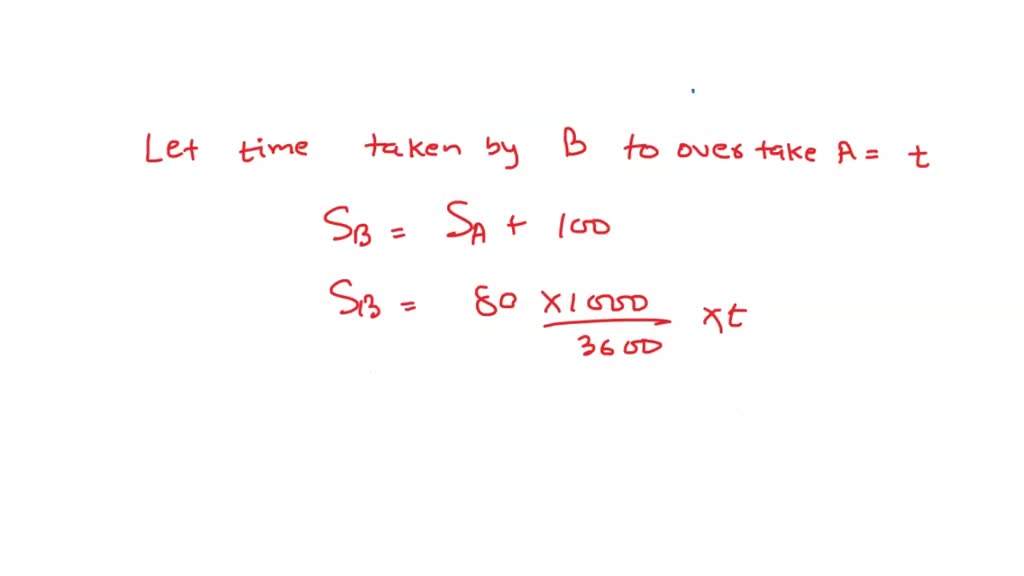 Let time taken by B to over take A = t
S_B = S_A + 100
S_B = 80 × 1000 / 3600 × t